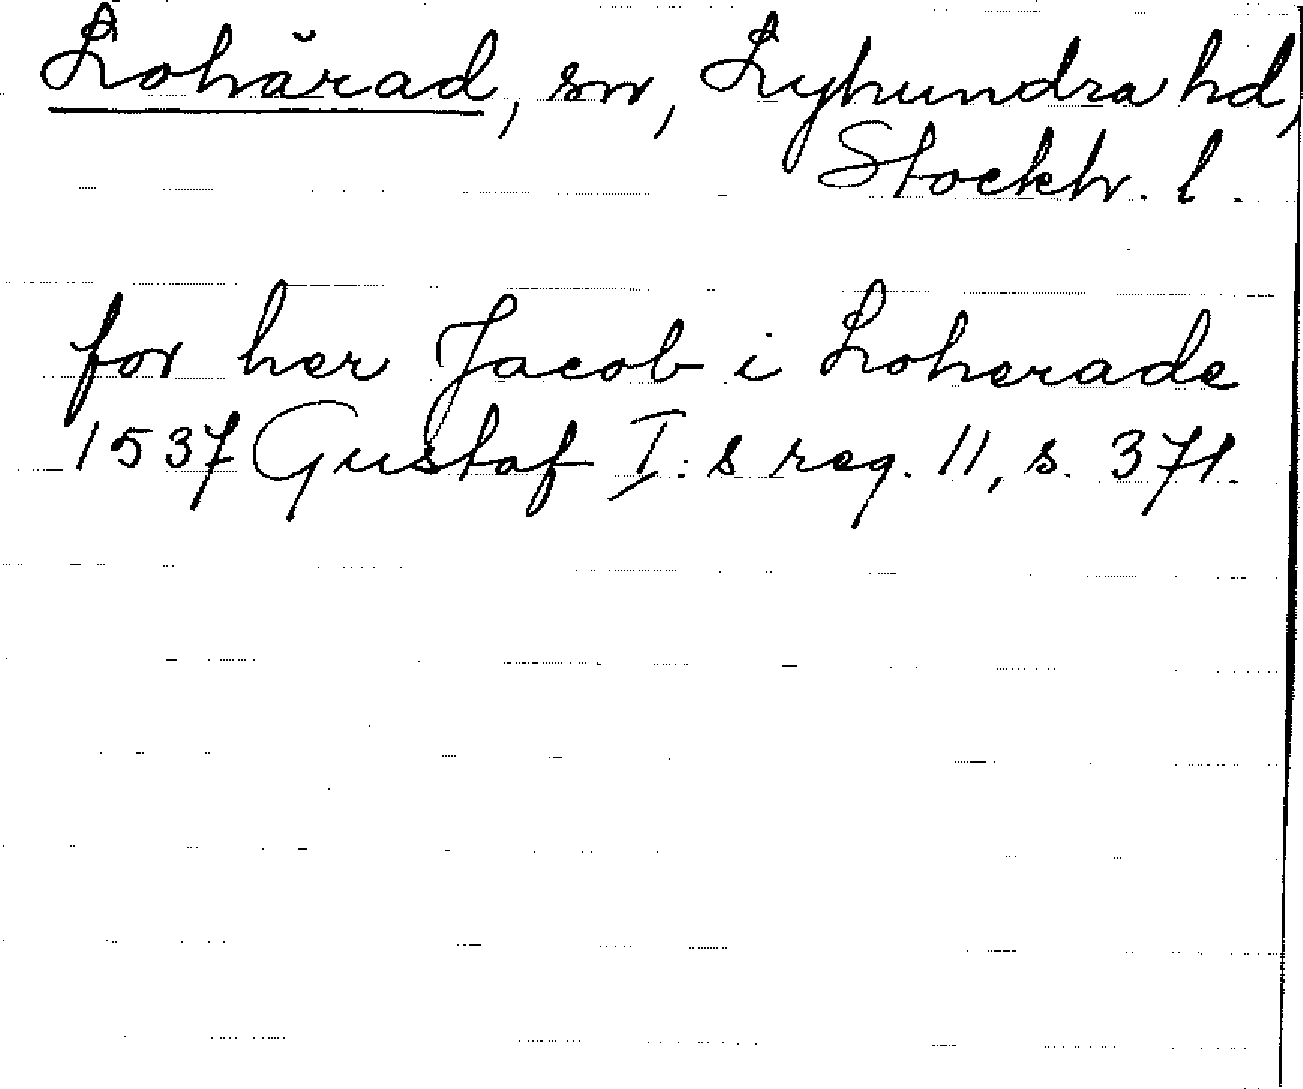 Lohärad, sn, Lyhundra hd,
Stockh. l.
for her Jacob i Loherade
1537 Gustaf I:s reg. 11, s. 371.